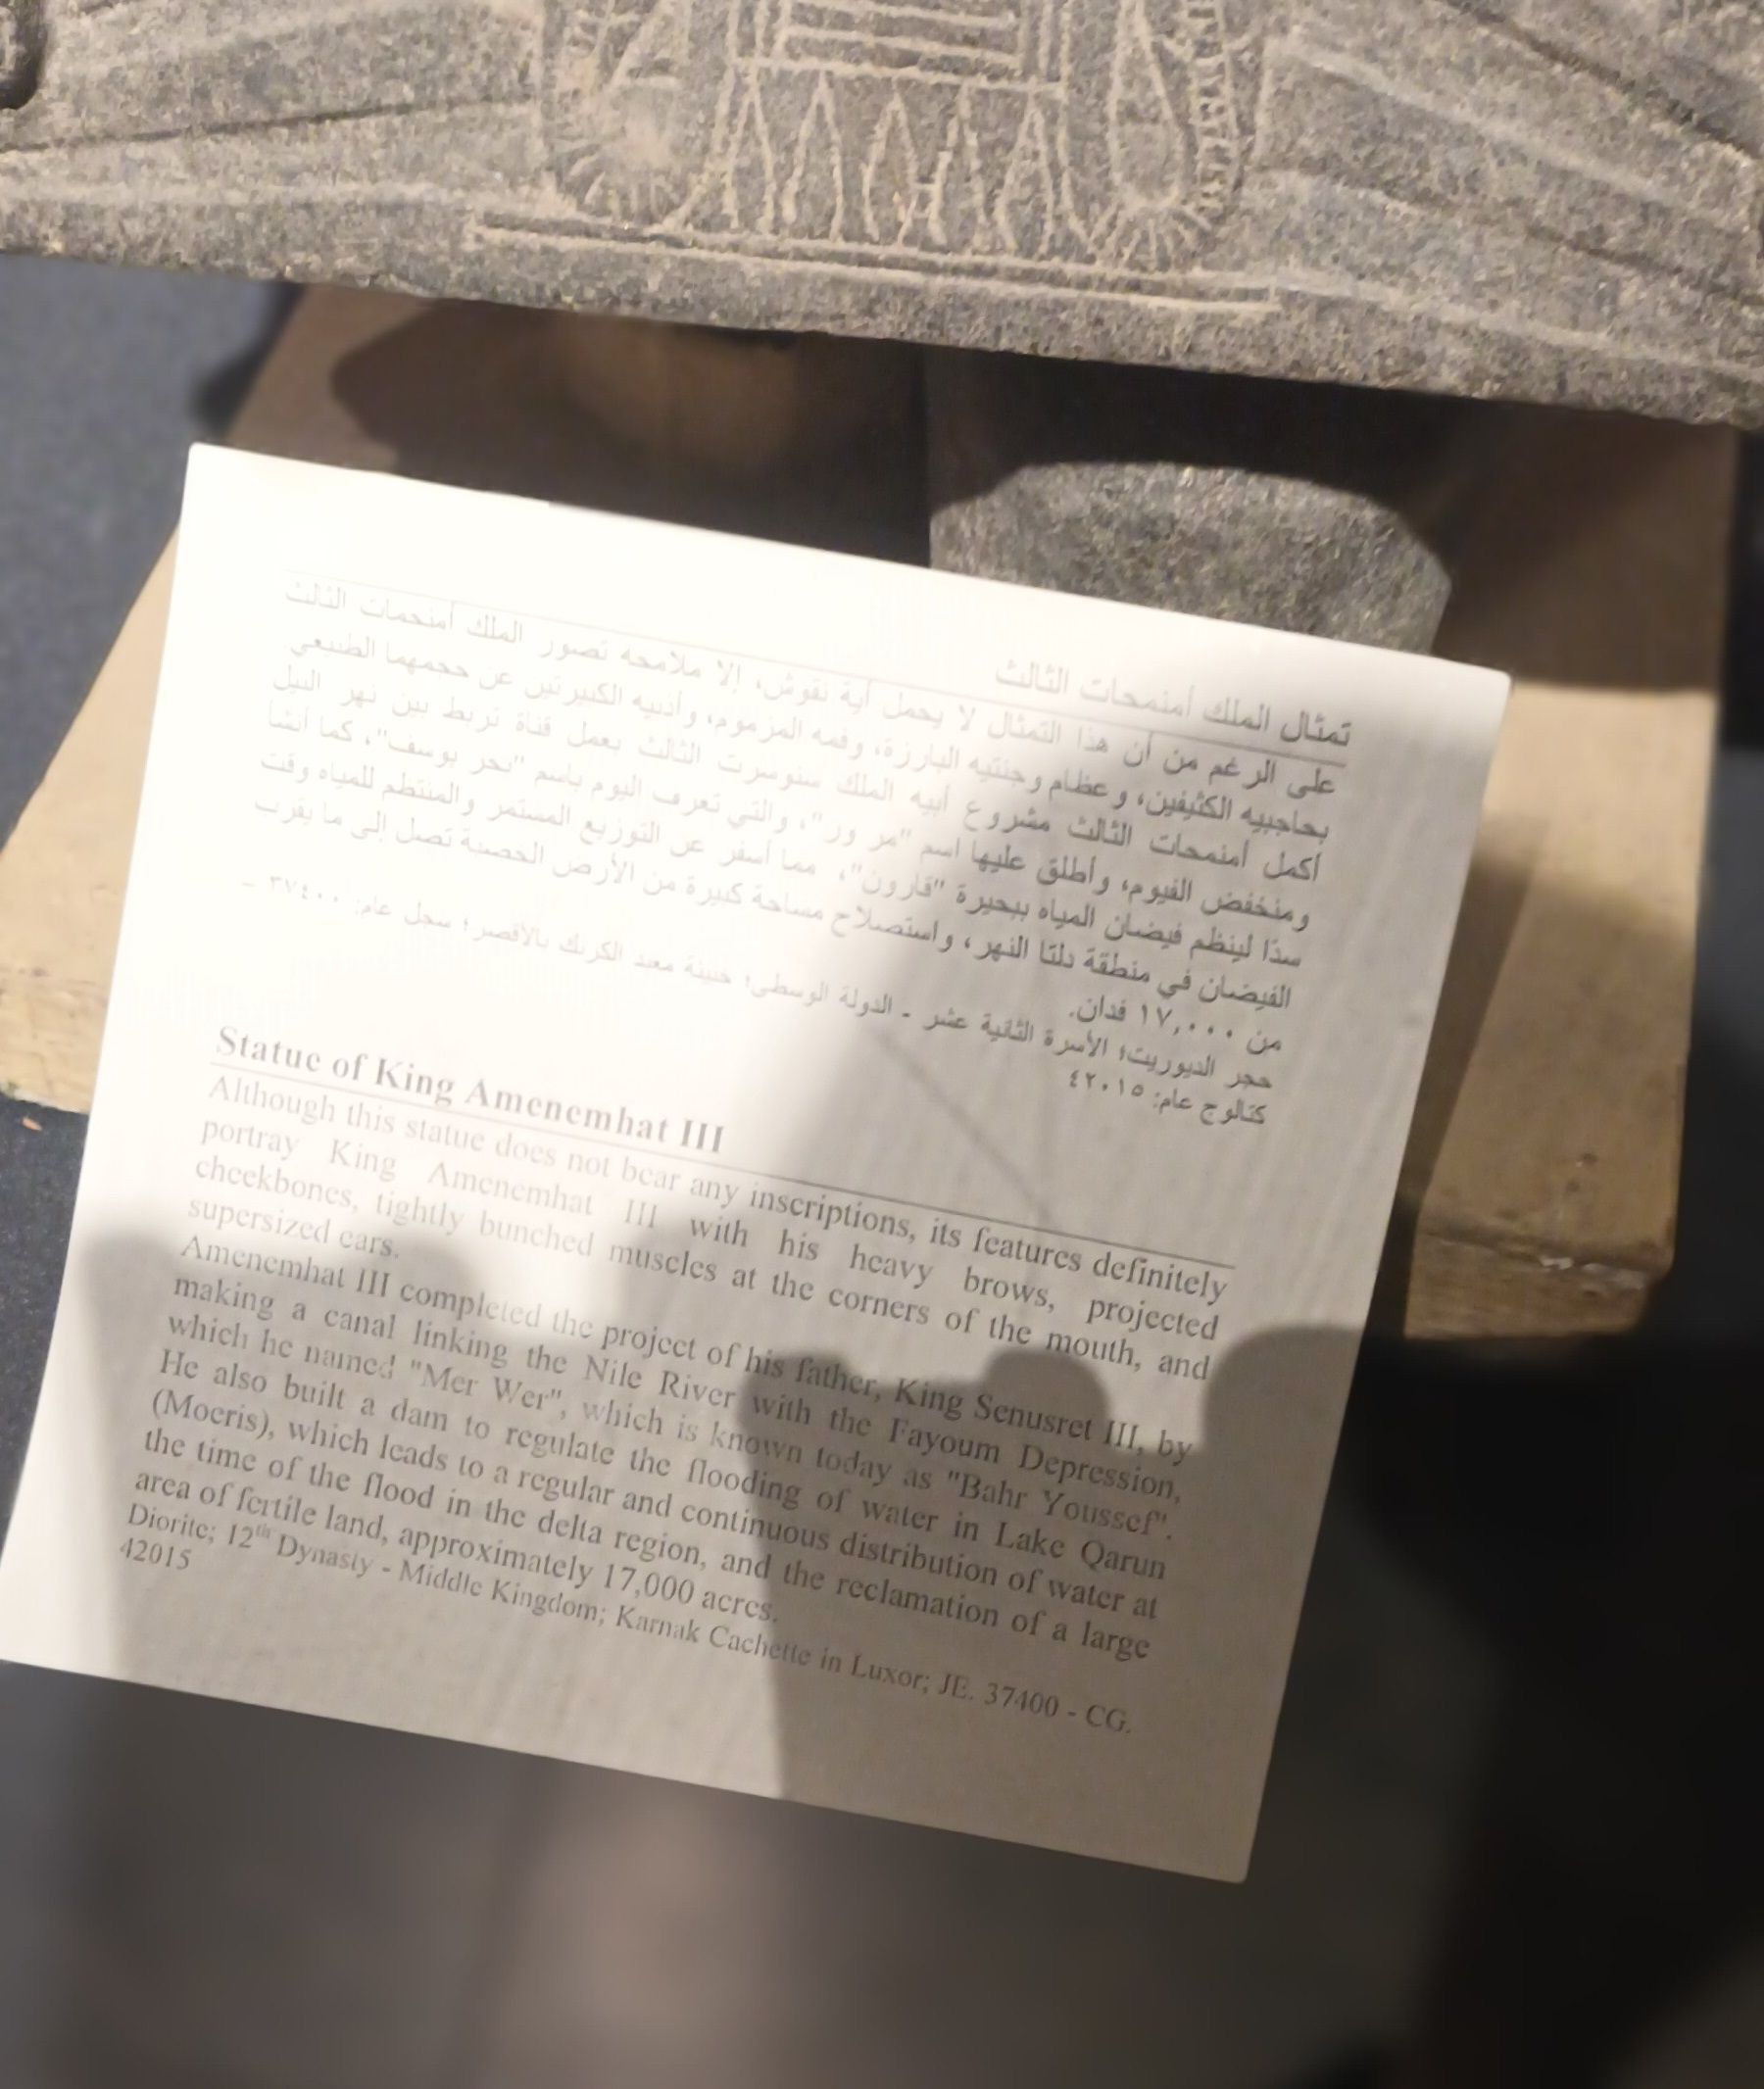 تمثال الملك أمنمحات الثالث
على الرغم من أن هذا التمثال لا يحمل أية نقوش، إلا ملامحه تصور الملك أمنحمات الثالث
بحاجبيه الكثيفين، وعظام وجنتيه البارزة، وفمه المزموم، وأذنيه الكبيرتين عن حجمهما الطبيعي
أكمل أمنمحات الثالث مشروع أبيه الملك سنوسرت الثالث بعمل قناة تربط بين نهر النيل
ومنخفض الفيوم، وأطلق عليها اسم "مر ور"، والتي تعرف اليوم باسم "بحر يوسف"، كما أنشأ
سدًا لينظم فيضان المياه ببحيرة "قارون"، مما أسفر عن التوزيع المستمر والمنتظم للمياه وقت
الفيضان في منطقة دلتا النهر، واستصلاح مساحة كبيرة من الأرض الخصبة تصل إلى ما يقرب
من ١٧,٠٠٠ فدان.
حجر الديوريت؛ الأسرة الثانية عشر - الدولة الوسطى؛ خبيئة معبد الكرنك بالأقصر؛ سجل عام: ٣٧٤٠٠ -
كتالوج عام: ٤٢٠١٥
Statue of King Amenemhat III
Although this statue does not bear any inscriptions, its features definitely
portray King Amenemhat III with his heavy brows, projected
cheekbones, tightly bunched muscles at the corners of the mouth, and
supersized ears.
Amenemhat III completed the project of his father, King Senusret III, by
making a canal linking the Nile River with the Fayoum Depression,
which he named "Mer Wer", which is known today as "Bahr Youssef".
He also built a dam to regulate the flooding of water in Lake Qarun
(Moeris), which leads to a regular and continuous distribution of water at
the time of the flood in the delta region, and the reclamation of a large
area of fertile land, approximately 17,000 acres.
Diorite; 12th Dynasty - Middle Kingdom; Karnak Cachette in Luxor; JE. 37400 - CG.
42015